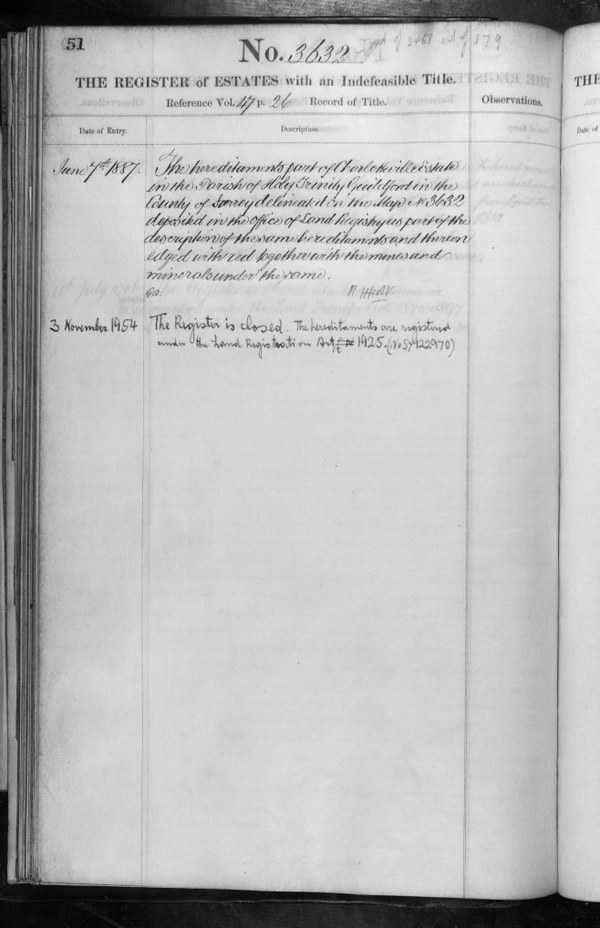 51
No. 3632
of 2461 out of 179
THE REGISTER of ESTATES with an Indefeasible Title.
Reference Vol. 47 p. 26 Record of Title.
Observations.
Date of Entry.
Description.
June 7th 1887.
The hereditaments part of Charlotteville Estate
in the Parish of Holy Trinity Guildford in the
County of Surrey delineated on the Map No 3632
deposited in the Office of Land Registry as part of the
description of the same hereditaments and thereon
edged with red together with the mines and
minerals under the same.
3 November 1954
The Register is closed. The hereditaments are registered
under the Land Registration Act, 1925. (No Sy 122970)
THE
Date of